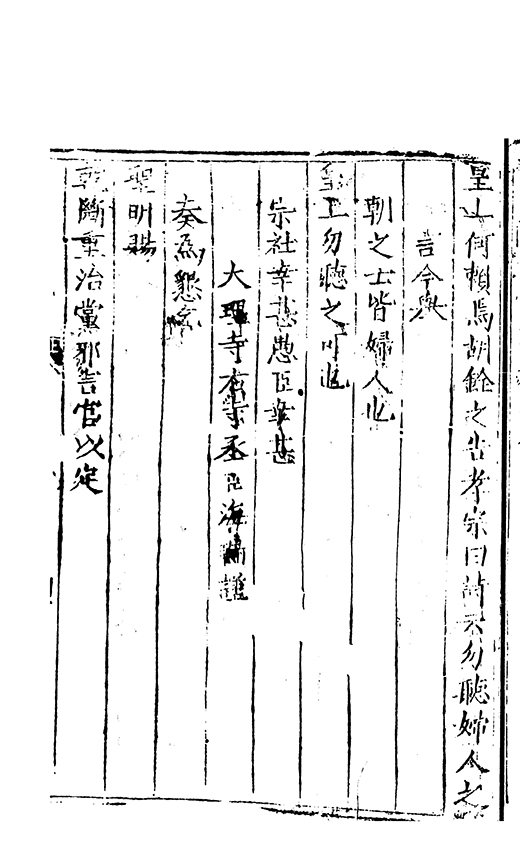 皇上何賴焉胡銓之告孝宗曰詩云勿聽婦人之
言今舉
朝之士皆婦人也
皇上勿聽之可也
宗社幸甚愚臣幸甚
大理寺右寺丞臣海瑞謹
奏為懇乞
聖明賜
乾斷重治黨邪言官以定